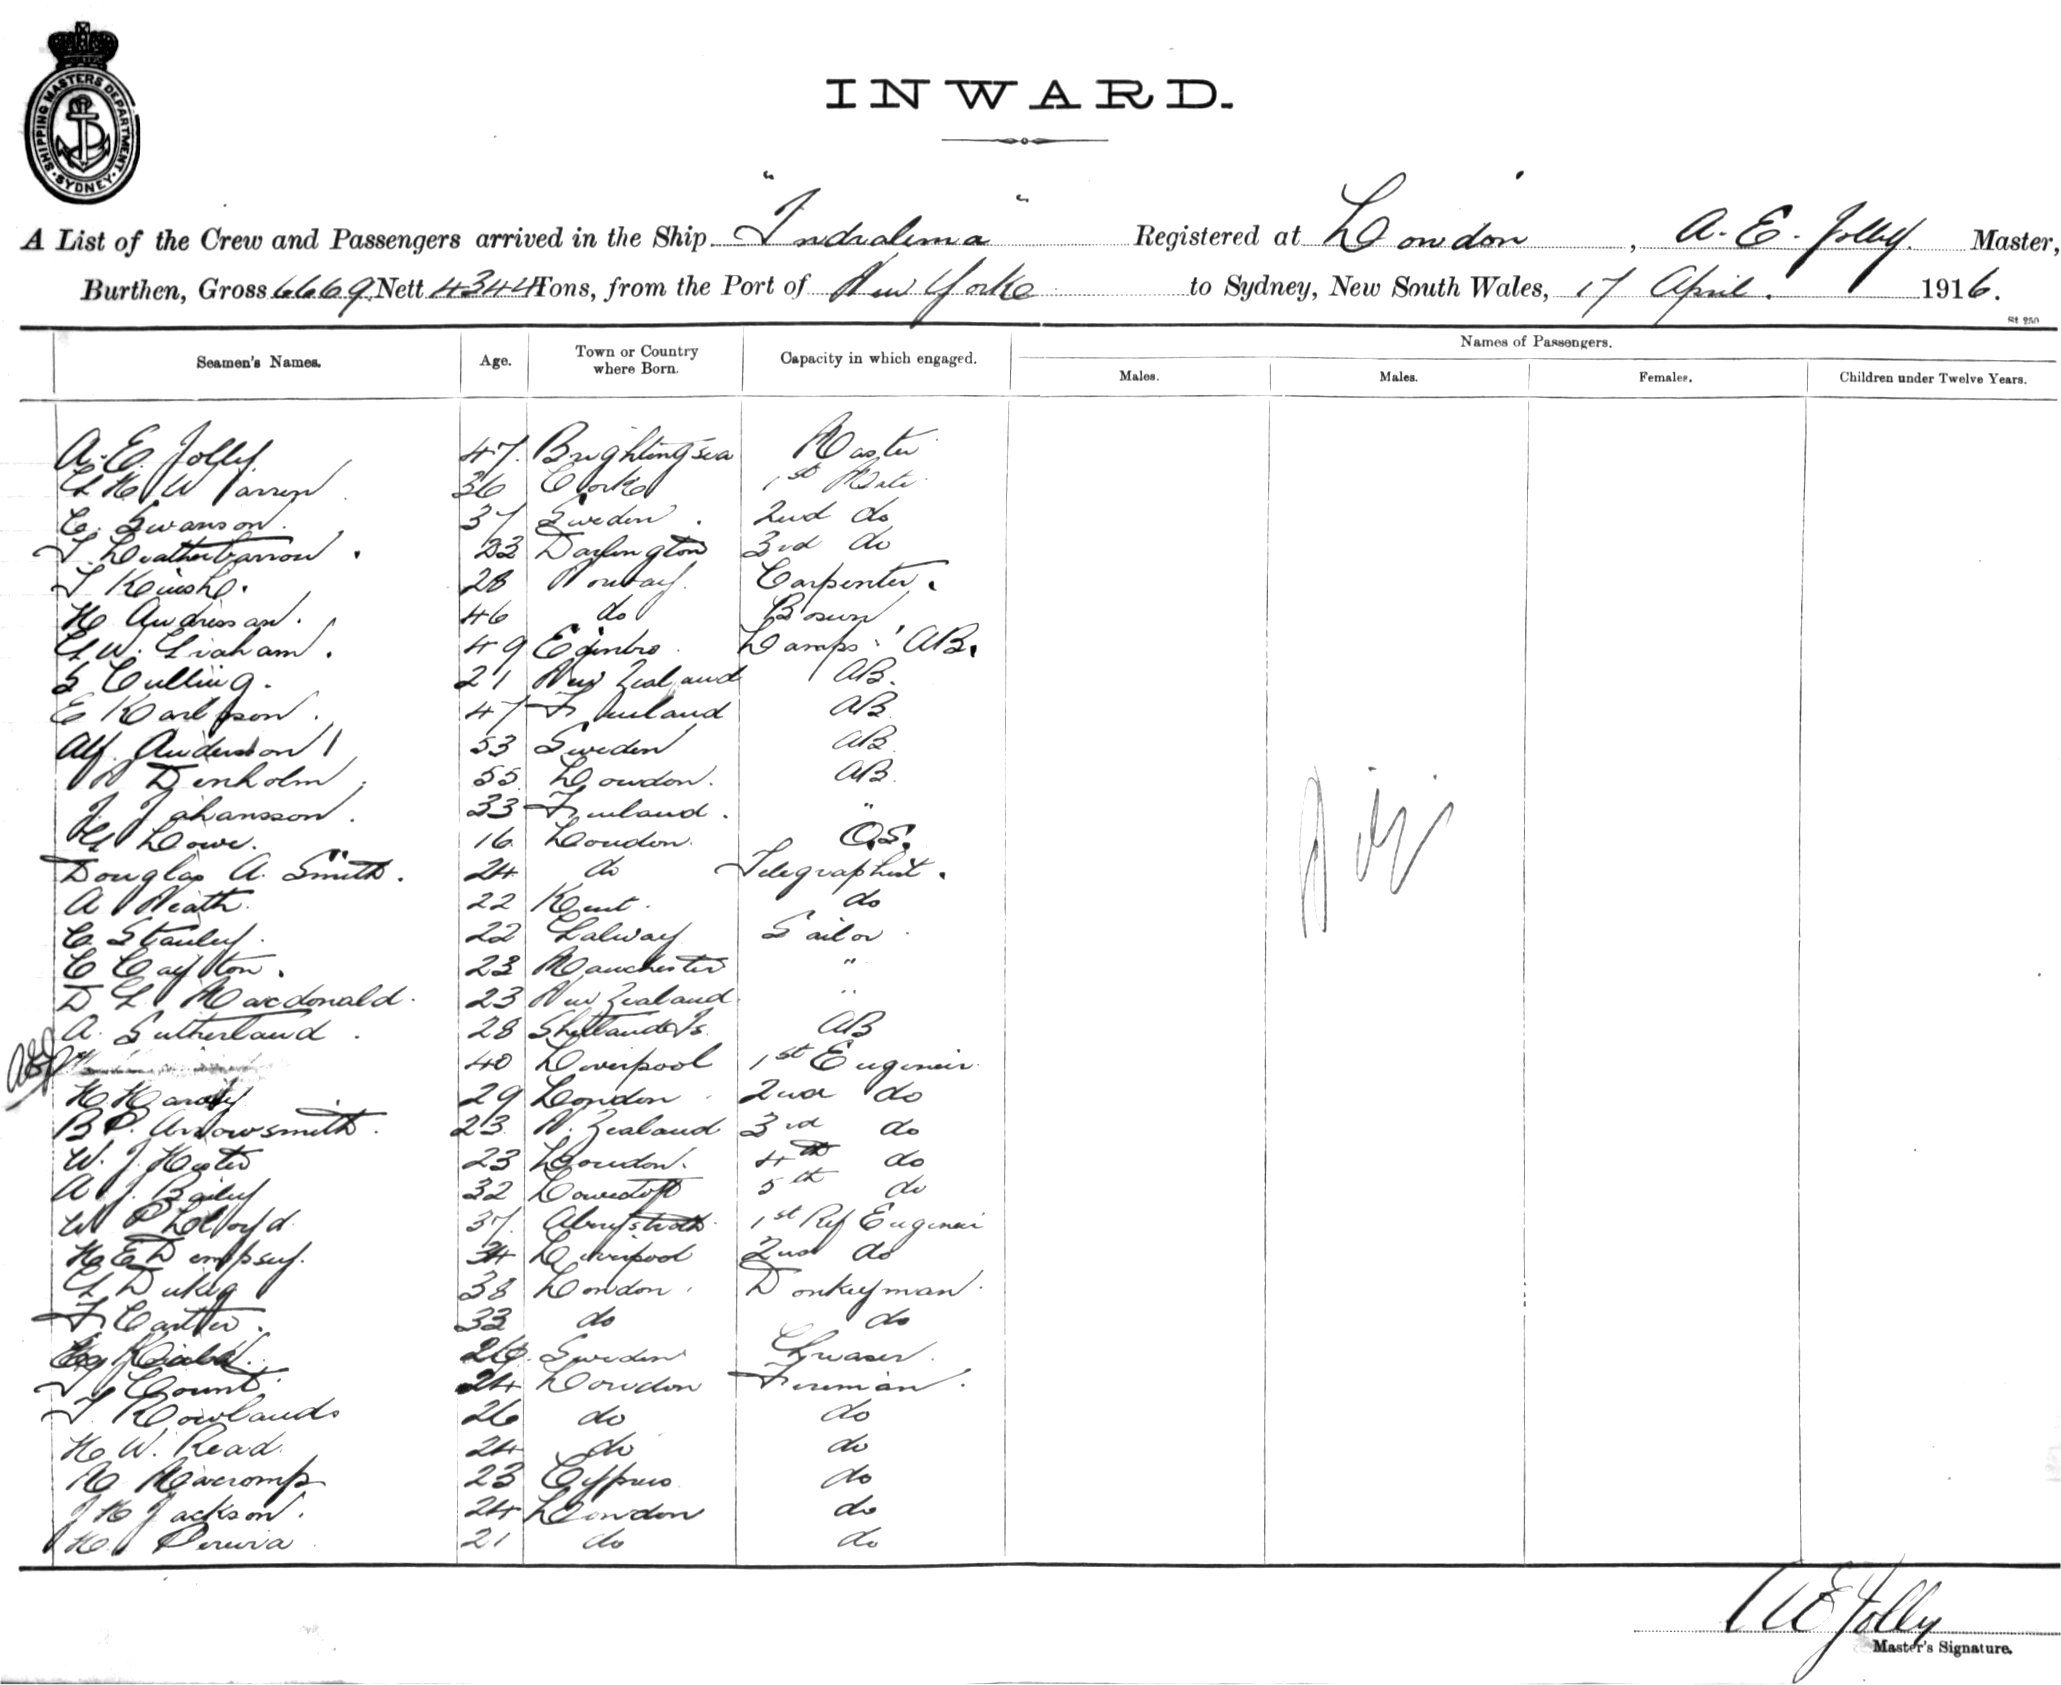 SHIPPING MASTERS DEPARTMENT. SYDNEY.
INWARD.
A List of the Crew and Passengers arrived in the Ship "Indralema" Registered at London, A. E. Jolly. Master,
Burthen, Gross 6669 Nett 4344 Tons, from the Port of New York to Sydney, New South Wales, 17 April. 1916.
St 250
Seamen's Names. Age. Town or Country where Born. Capacity in which engaged. Names of Passengers.
Males. Males. Females. Children under Twelve Years.
A. E. Jolly. 47. Brightingsea Master
G H Warren 36 Cork 1st Mate
C. Swanson. 37 Sweden. 2nd do
T. Leatherbarrow. 33 Darlington 3rd do
28 Norway. Carpenter.
H Andresen. 46 do Bosun
G W. Graham. 49 Edinbro. Lamps & AB.
S Culling. 21 New Zealand AB.
E Karlsson. 47 Finland AB.
Alf. Anderson 1 53 Sweden AB.
A Denholm 55 London. AB.
J Johansson. 33 Finland. "
G Lowe. 16 London. O.S.
Douglas A. Smith. 24 do Telegraphist.
A Heath. 22 Kent. do
C. Stanley. 22 Galway Sailor
C Cayton. 23 Manchester "
D L Macdonald. 23 New Zealand "
A. Sutherland. 28 Shetland Is. AB
AEJ 40 Liverpool 1st Engineer
H. Hardy 29 London 2nd do
B P. Arrowsmith. 23 N. Zealand 3rd do
W. J. Hester 23 London. 4th do
A J. Bailey 32 Lowestoft 5th do
W P Lloyd 37. Aberystwith. 1st Ref Engineer
H E Dempsey. 34 Liverpool 2nd do
G Duke 38 London. Donkeyman.
F Carter. 33 do do
26. Sweden Greaser.
T Count. 24 London Fireman.
T. Rowlands 26 do do
H W. Read. 24 do do
23 Cyprus do
J H Jackson. 24 London do
H Pereira 21 do do
A E Jolly
Master's Signature.